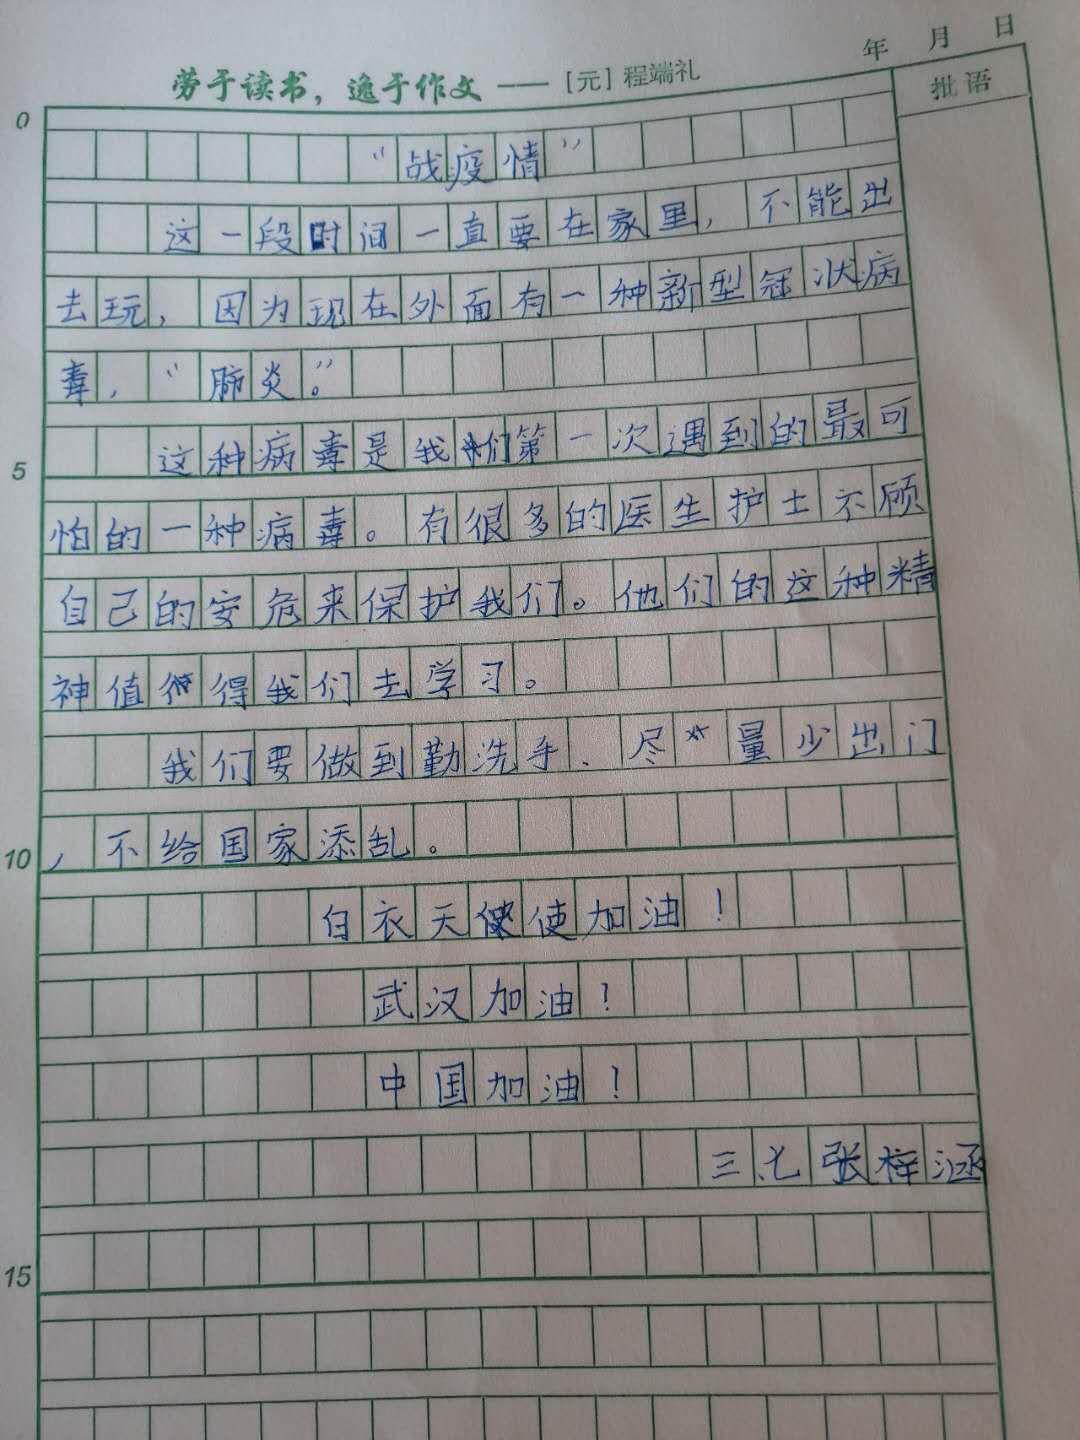 年 月 日
劳于读书，逸于作文 —— [元] 程端礼
批语
0
“战疫情”
这一段时间一直要在家里，不能出
去玩，因为现在外面有一种新型冠状病
毒，“肺炎。”
这种病毒是我们第一次遇到的最可
5
怕的一种病毒。有很多的医生护士不顾
自己的安危来保护我们。他们的这种精
神值得我们去学习。
我们要做到勤洗手、尽量少出门
，不给国家添乱。
10
白衣天使加油！
武汉加油！
中国加油！
三.七张梓涵
15